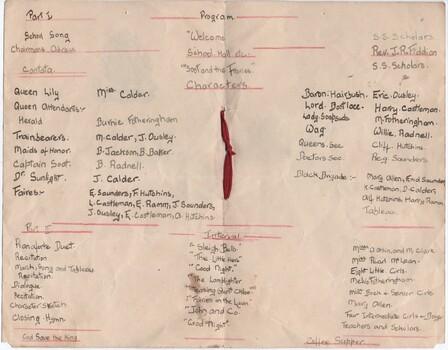 Part I
Program
School Song
"Welcome
S.S. Scholars
Chairmans Address
School Hall etc.
Rev. J.R. Fiddian
Cantata
"Soot and the Fairies"
S.S. Scholars.
Characters
Queen Lily Miss Calder.
Queen Attendants:-
Herald Burnie Fotheringham
Trainbearers. M. Calder, J. Ousley.
Maids of Honor. B. Jackson, B. Baker.
Captain Soot. B. Radnell.
Dr Sunlight. J. Calder.
Fairies:- E. Saunders, F. Hutchins,
L. Castleman, E. Ramm, J. Saunders,
J. Ousley, E. Castleman, O. Hutchins
Baron. Hairbush: Eric. Ousley.
Lord. Bootlace. Harry. Castleman.
Lady. Soapsuds M. Fotheringham.
Wag Willie. Radnell.
Queens. Sec Cliff. Hutchins.
Doctors Sec. Reg. Saunders.
Black Brigade:- Mary Allen, Enid Saunders
K. Castleman, D. Calder
Olf Hutchins, Harry Ramm
Tableau.
Part II
Interval
Pianoforte Duet
"Sleigh Bells"
Recitation
"The Little Hero"
Miss Pearl McLean
"Good Night"
Eight Little Girls.
Recitation.
"The Lamplighter
Melva Fotheringham
Dialogue
Recitation.
Mary Allen
Character Sketch
"John and Co.
Four Intermediate Girls & Boys
Closing Hymn
"Good Night"
Teachers and Scholars.
God Save the King
Coffee Supper